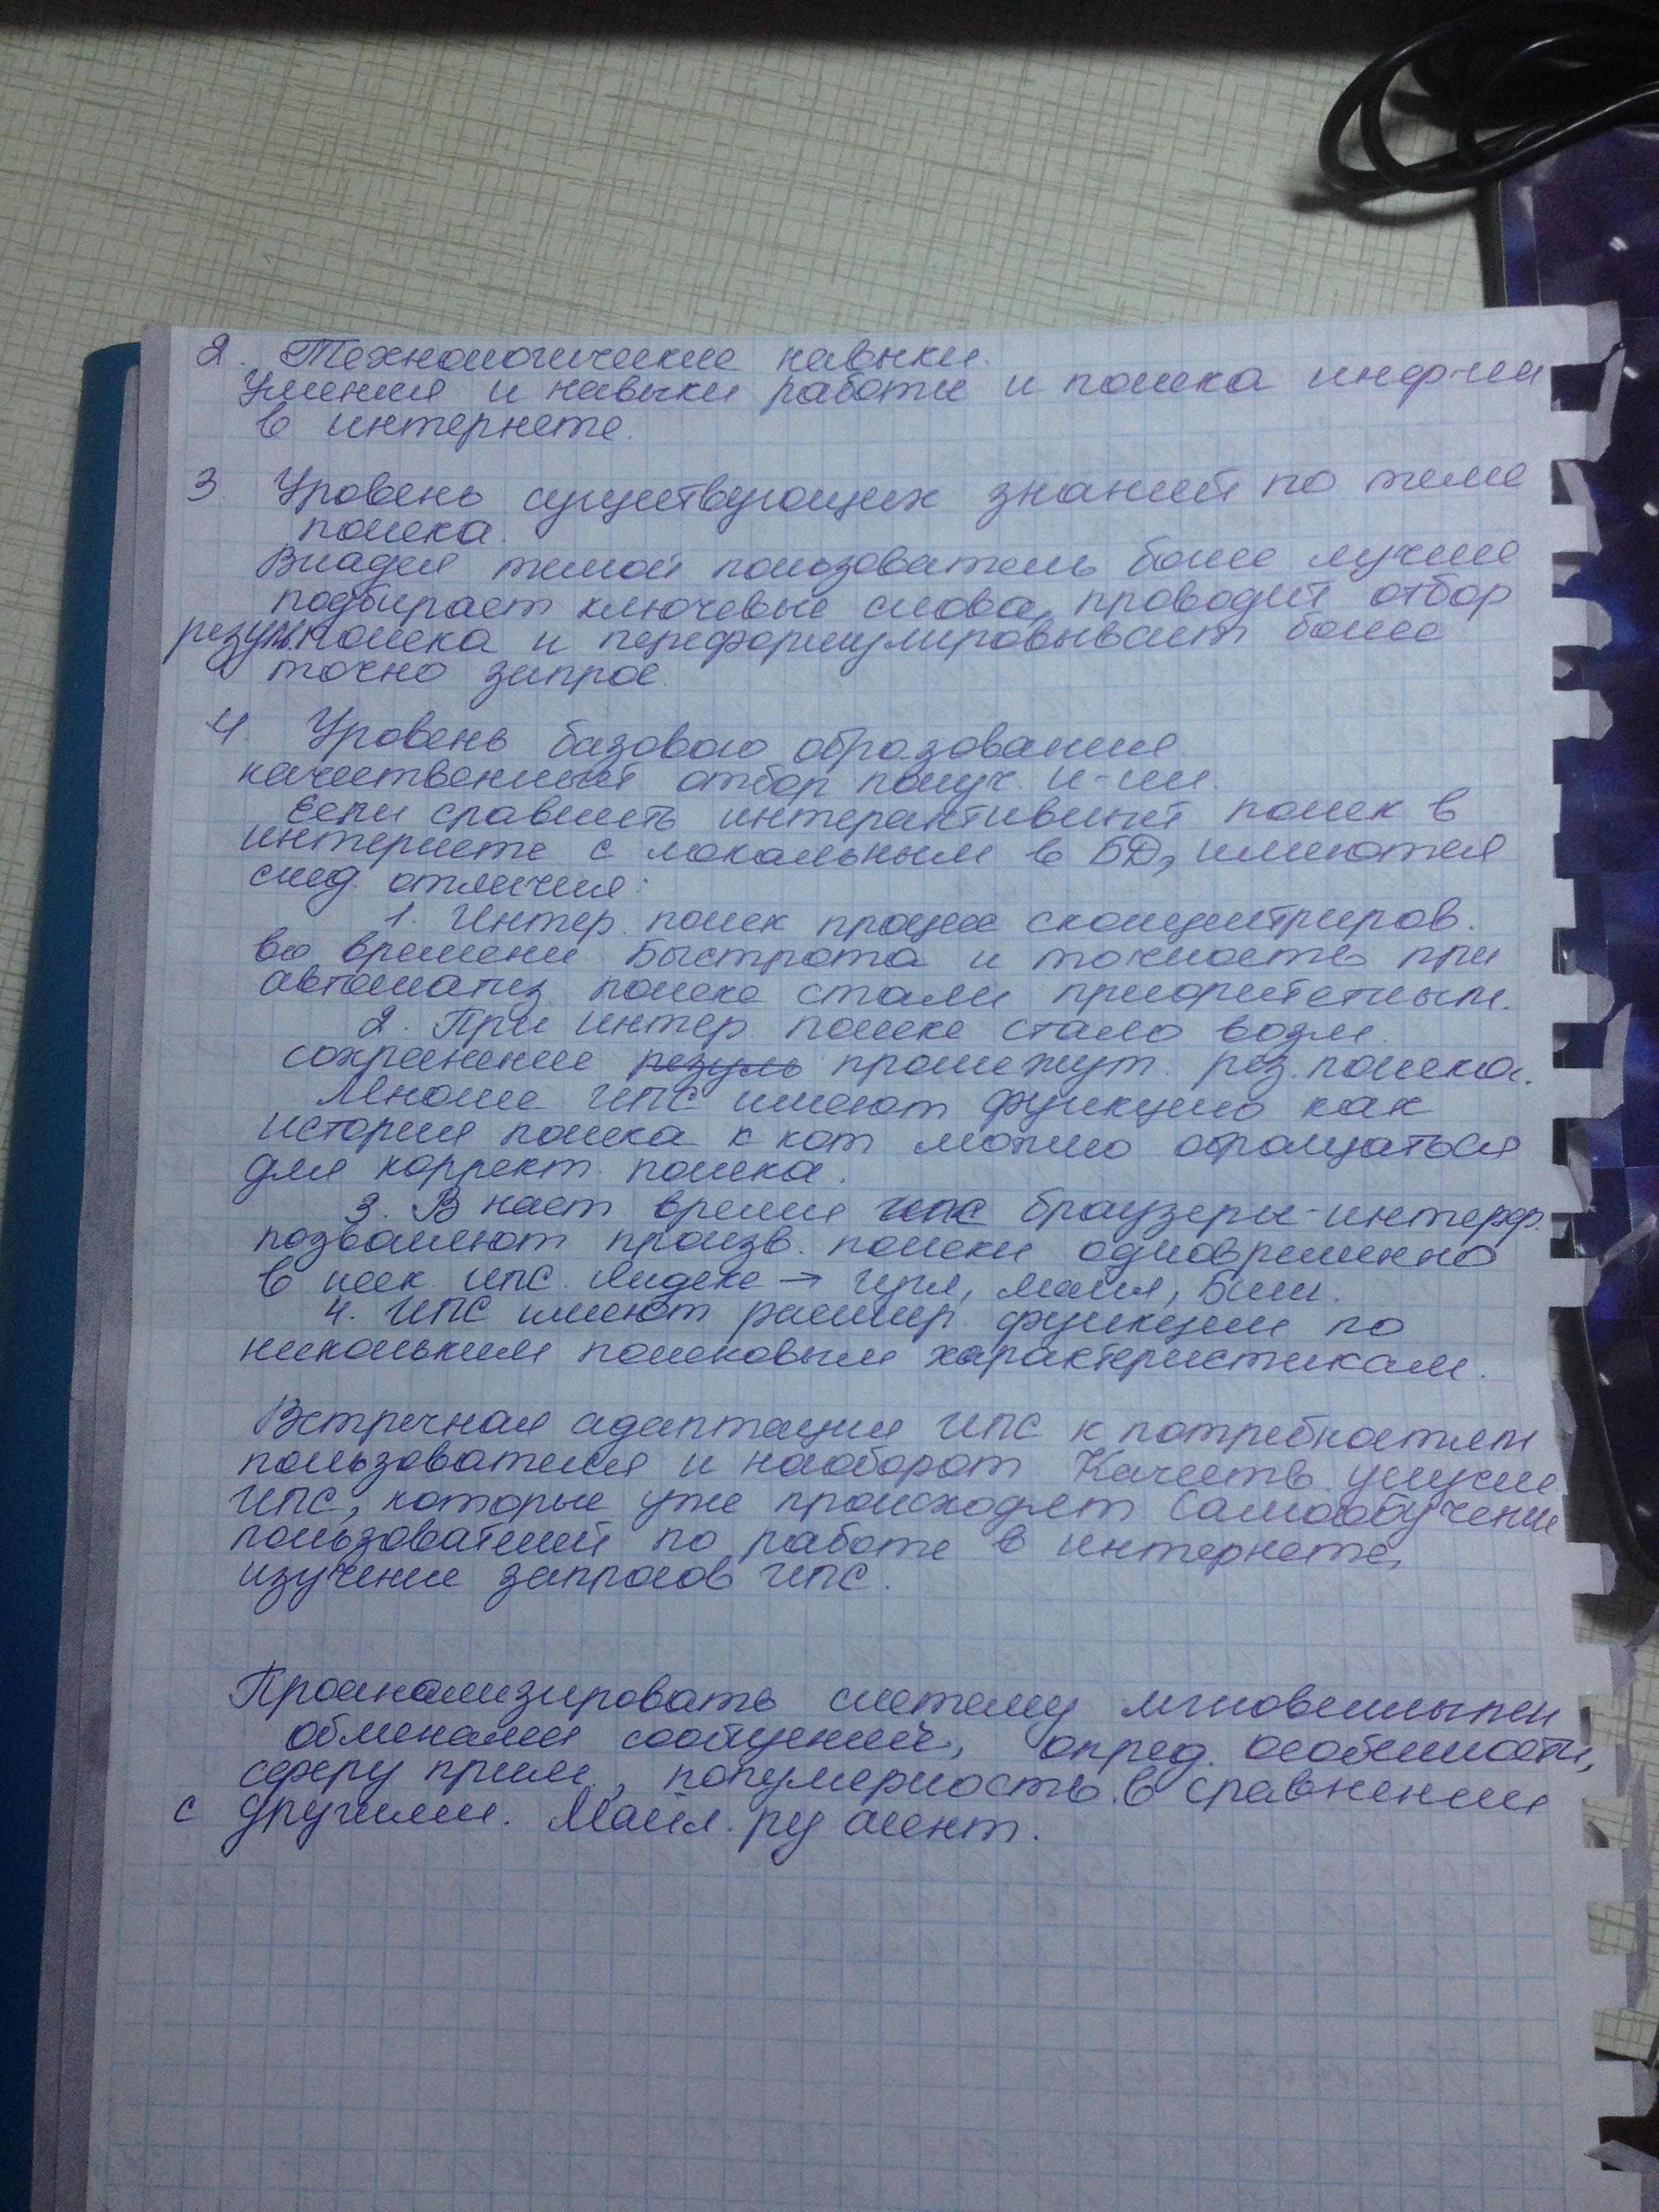 2. Технологические навыки.
Умения и навыки работы и поиска инф-ии
в интернете.
3 Уровень существующих знаний по теме
поиска.
Владея темой пользователь более лучше
подбирает ключевые слова, проводит отбор
резул. поиска и переформулировывает более
точно запрос.
4. Уровень базового образования
качественный отбор получ. и-ии.
Если сравнить интерактивный поиск в
интернете с локальным в БД, имеются
след. отличия:
1. Интер. поиск процесс сконцентриров.
во времени Быстрота и точность при
автоматиз. поиске стали приоритетным.
2. При интер. поиске стало возм.
сохранение резуль промежут. рез. поиска.
Многие ИПС имеют функцию как
история поиска к кот можно обращаться
для коррект. поиска.
3. В наст время ипс браузеры-интерф.
позволяют произв. поиски одновременно
в неск. ипс. Яндекс → гугл, маил, Бинг.
4. ИПС имеют расшир. функции по
нискольким поисковым характеристикам.
Встречная адаптация ИПС к потребностям
пользователя и наоборот Качеств. улучше
ИПС, которые уже происходят Самообучение
пользователей по работе в интернете,
изучение запросов ИПС.
Проанализировать систему мгновенными
обменами сообщений, опред. особенности,
сферу прим., популярность в сравнении
с другими. Маил. ру агент.